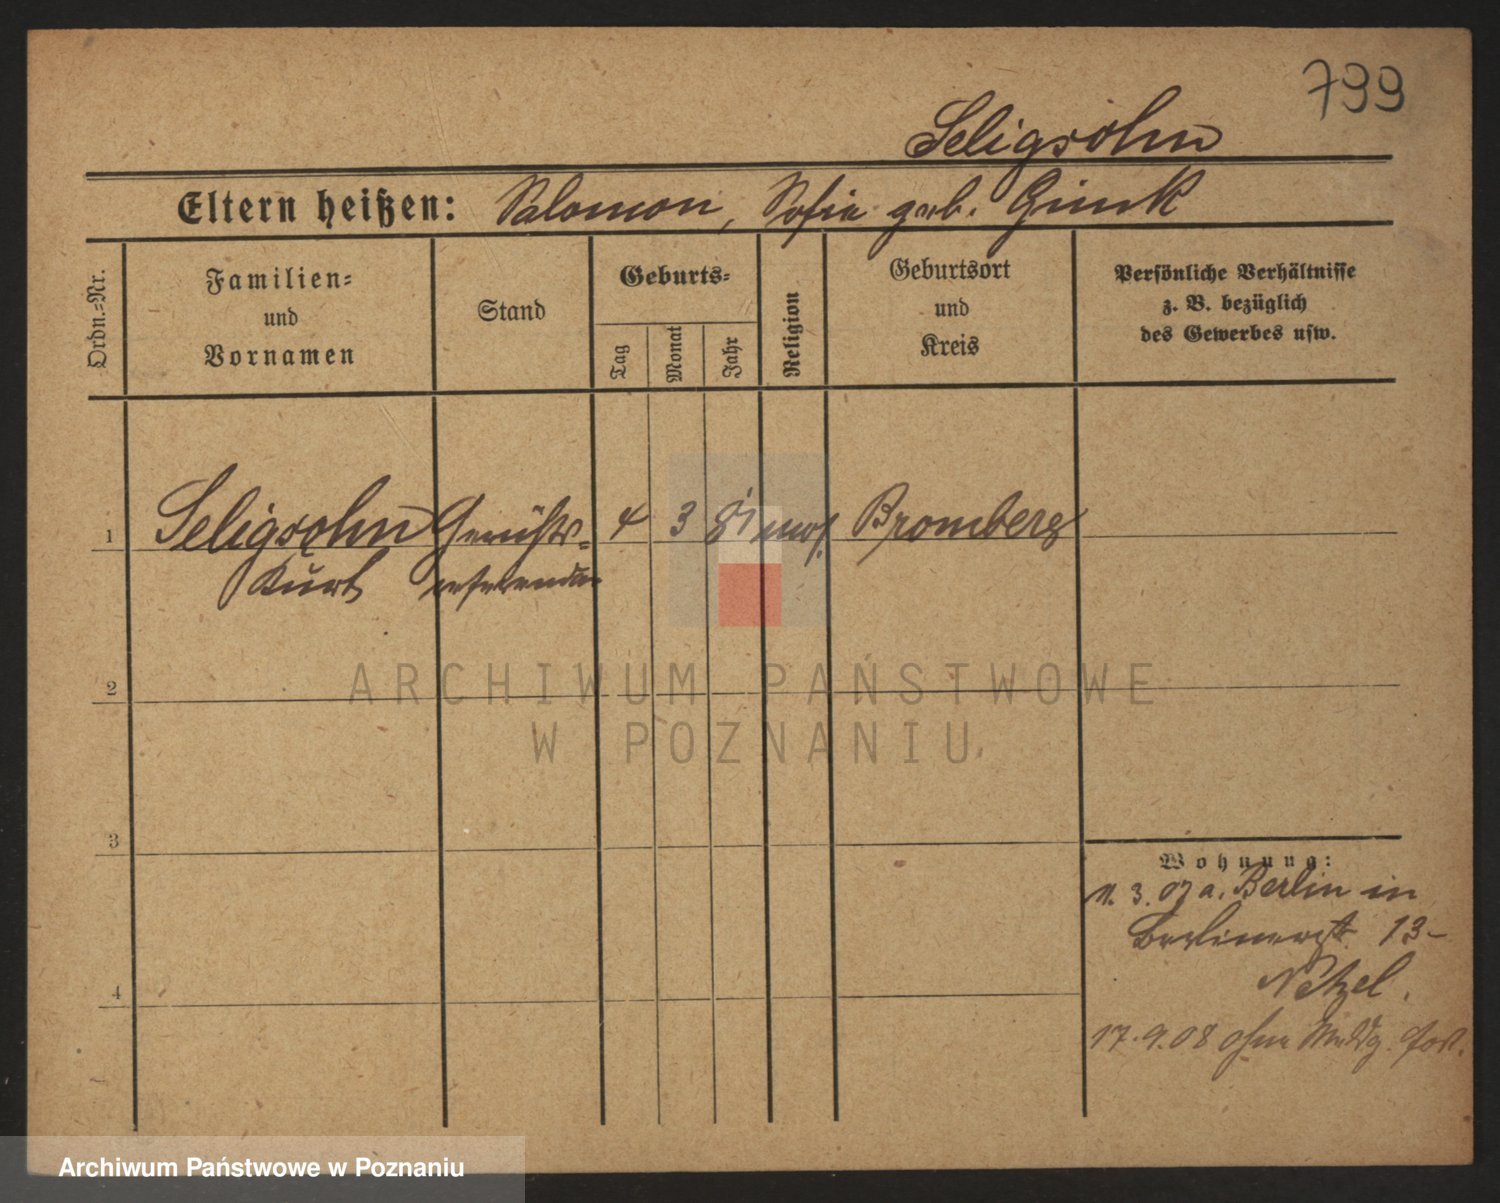 799
Seligsohn
Eltern heißen: Salomon, Sofie geb. Gimk
Ordn.=Nr.
Familien=
und
Vornamen
Stand
Geburts=
Tag
Monat
Jahr
Religion
Geburtsort
und
Kreis
Persönliche Verhältnisse
z. B. bezüglich
des Gewerbes usw.
1
Seligsohn Gerichts= 4 3 81 mos. Bromberg
Kurt referendar
2
3
4
Wohnung:
11. 3. 07 a. Berlin in
Berlinerstr. 13-
Netzel.
17.9.08 ohne Meldg. fort.
ARCHIWUM PAŃSTWOWE
W POZNANIU
Archiwum Państwowe w Poznaniu